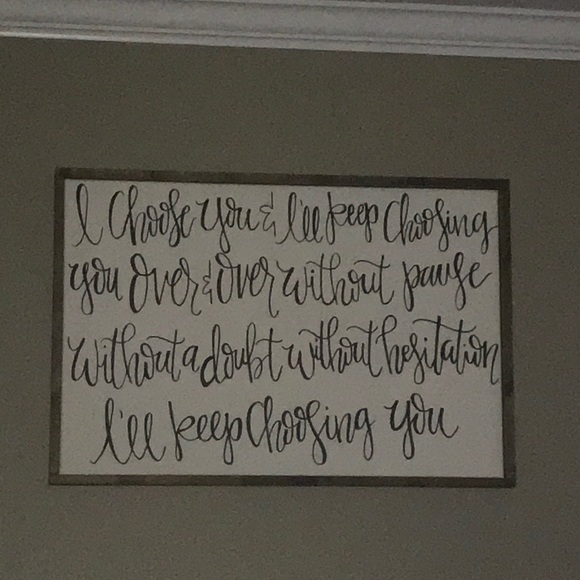 I Choose you & I'll keep Choosing
you Over & Over without pause
without a doubt without hesitation
I'll keep Choosing you